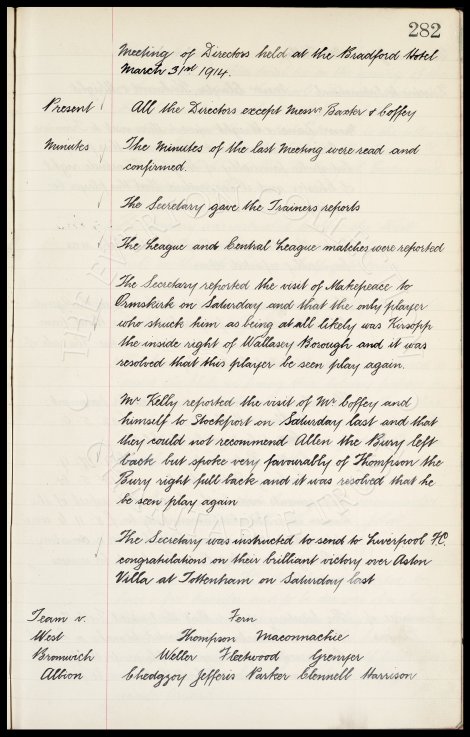 282
Meeting of Directors held at the Bradford Hotel
March 31st 1914.
Present All the Directors except Messrs Baxter & Coffey
Minutes The Minutes of the last Meeting were read and
confirmed.
The Secretary gave the Trainers reports
The League and Central League matches were reported
The Secretary reported the visit of Makepeace to
Ormskirk on Saturday and that the only player
who struck him as being at all likely was Kirsopp
the inside right of Wallasey Borough and it was
resolved that this player be seen play again.
Mr Kelly reported the visit of Mr Coffey and
himself to Stockport on Saturday last and that
they could not recommend Allen the Bury left
back but spoke very favourably of Thompson the
Bury right full back and it was resolved that he
be seen play again
The Secretary was instructed to send to Liverpool F.C.
congratulations on their brilliant victory over Aston
Villa at Tottenham on Saturday last
Team v. Fern
West Thompson Maconnachie
Bromwich Weller Fleetwood Grenyer
Albion Chedgzoy Jefferis Parker Clennell Harrison